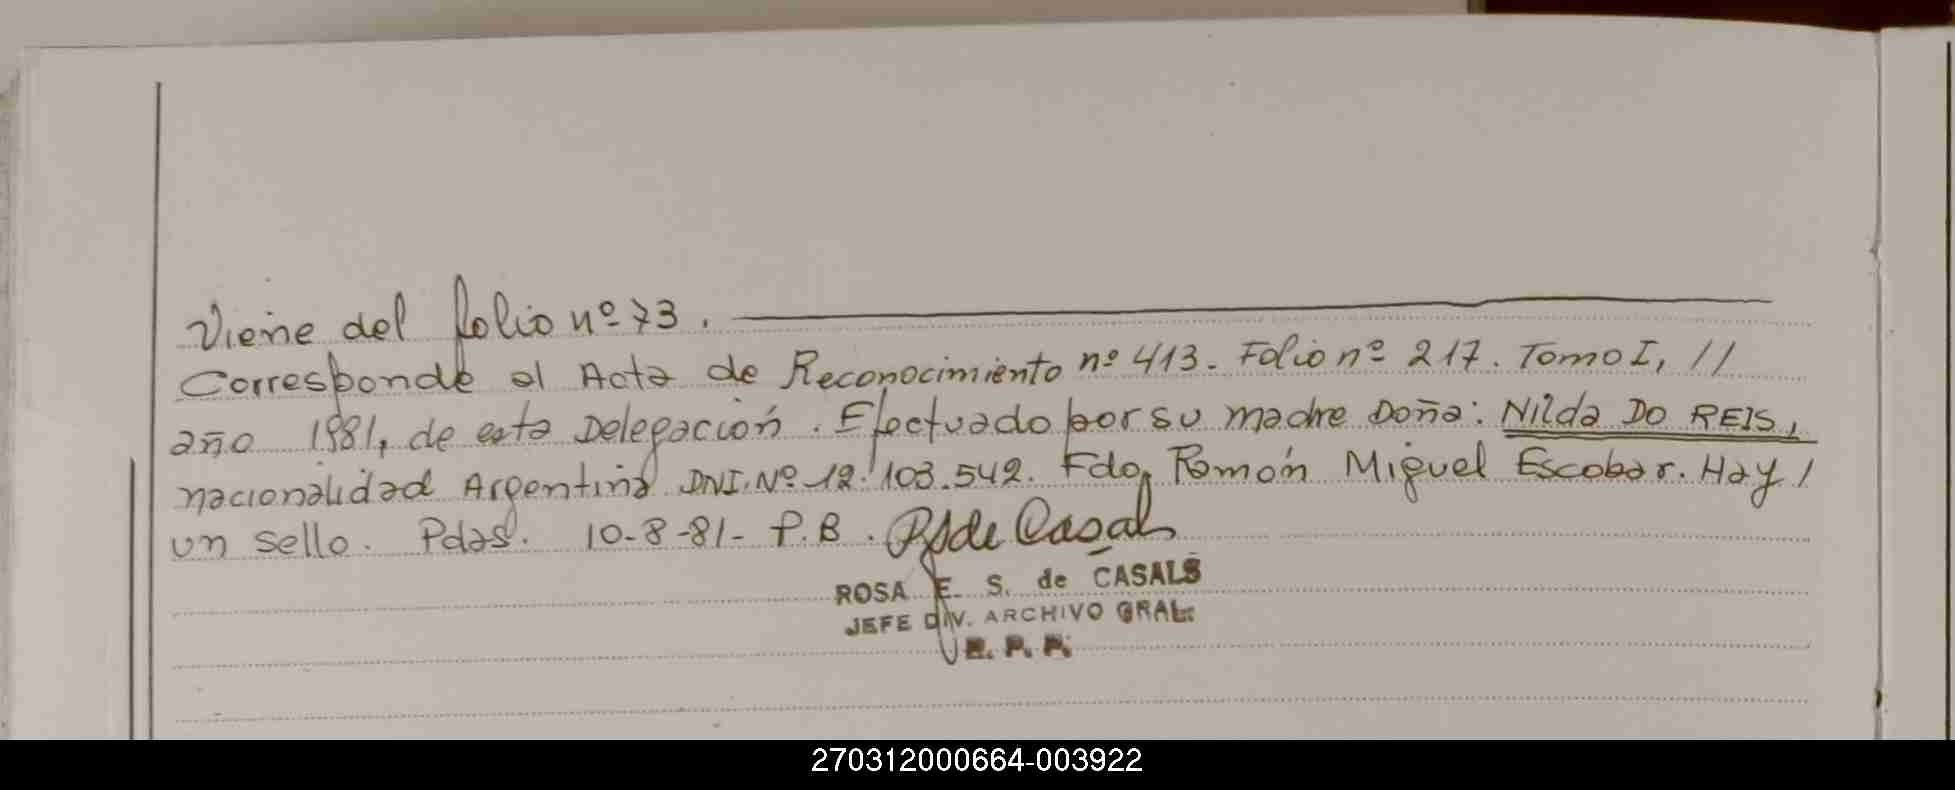 Viene del folio nº 73.
Corresponde al Acta de Reconocimiento nº 413. Folio nº 217. Tomo I, //
año 1981, de esta Delegación. Efectuado por su madre Doña: Nilda DO REIS,
nacionalidad Argentina DNI. Nº 12.103.542. Fdo, Ramón Miguel Escobar. Hay /
un sello. Pdas. 10-8-81- P.B. RSde Casals
ROSA E. S. de CASALS
JEFE DIV. ARCHIVO GRAL.
R. P. P.
270312000664-003922